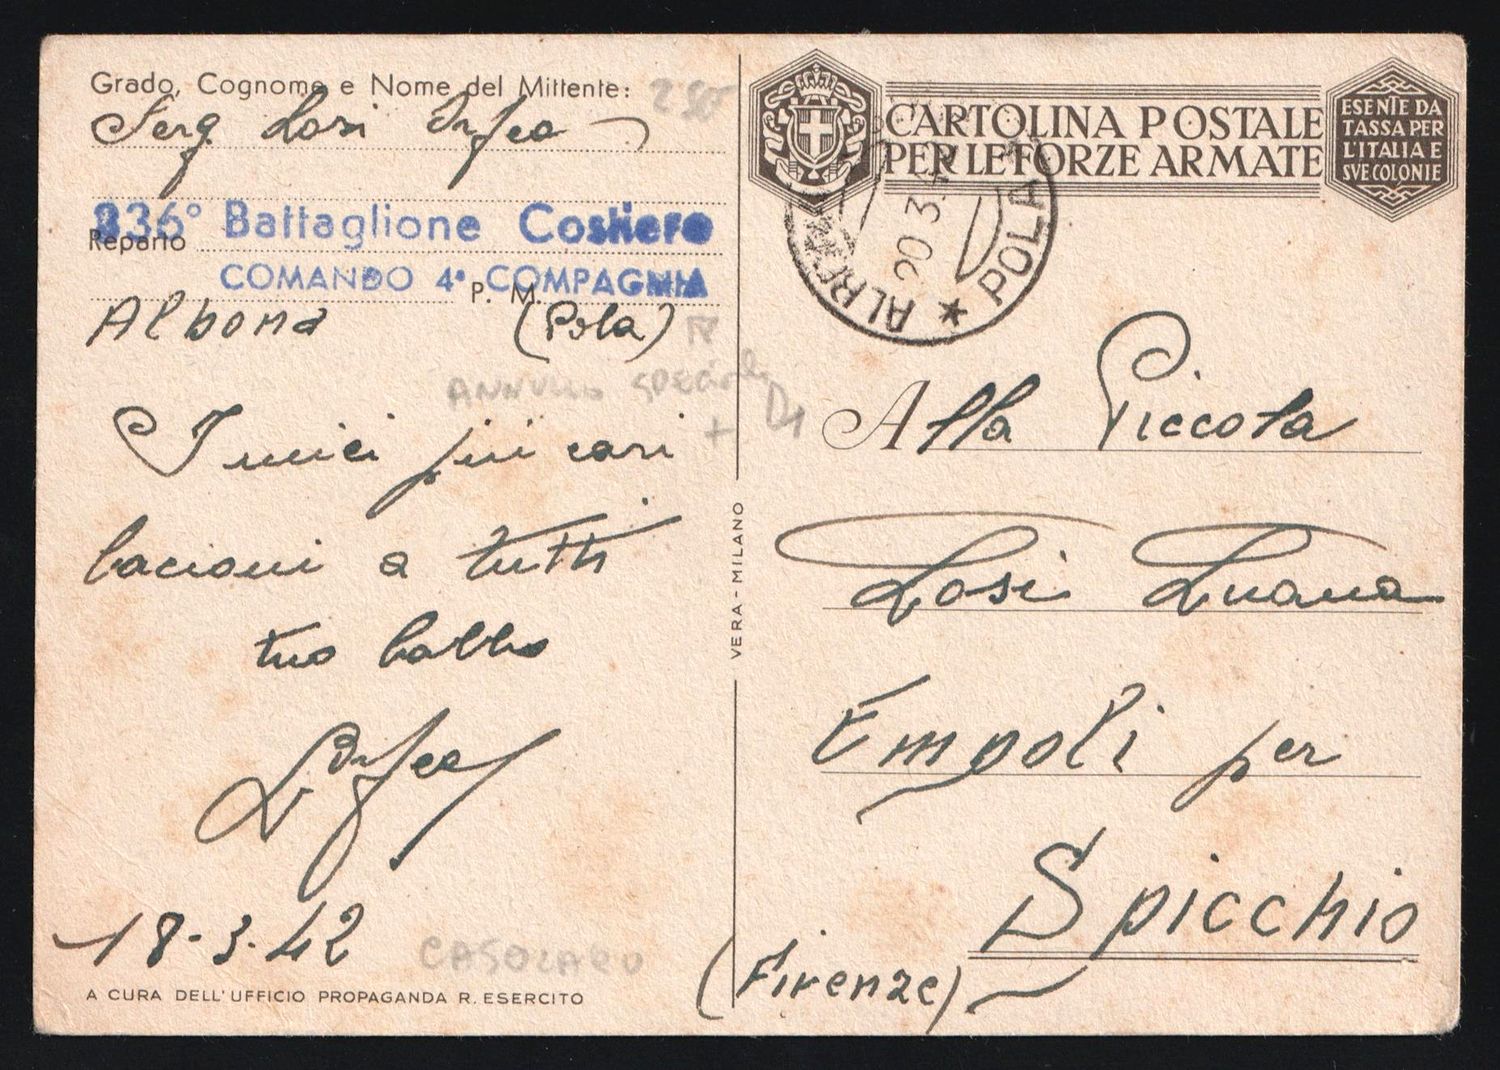 Grado, Cognome e Nome del Mittente:
Serg Losi Orfeo
336° Battaglione Costiero
Reparto
COMANDO 4ª COMPAGNIA
P. M.
Albona (Pola)
ANNULLO SPECIALE
I miei più cari
bacioni a tutti
tuo babbo
LOrfeo
18-3-42
CASOLARO
A CURA DELL'UFFICIO PROPAGANDA R. ESERCITO
VERA - MILANO
CARTOLINA POSTALE
PER LE FORZE ARMATE
ESENTE DA
TASSA PER
L'ITALIA E
SVE COLONIE
20 3
POLA
Alla Piccola
Losi Luana
Empoli per
Spicchio
(Firenze)